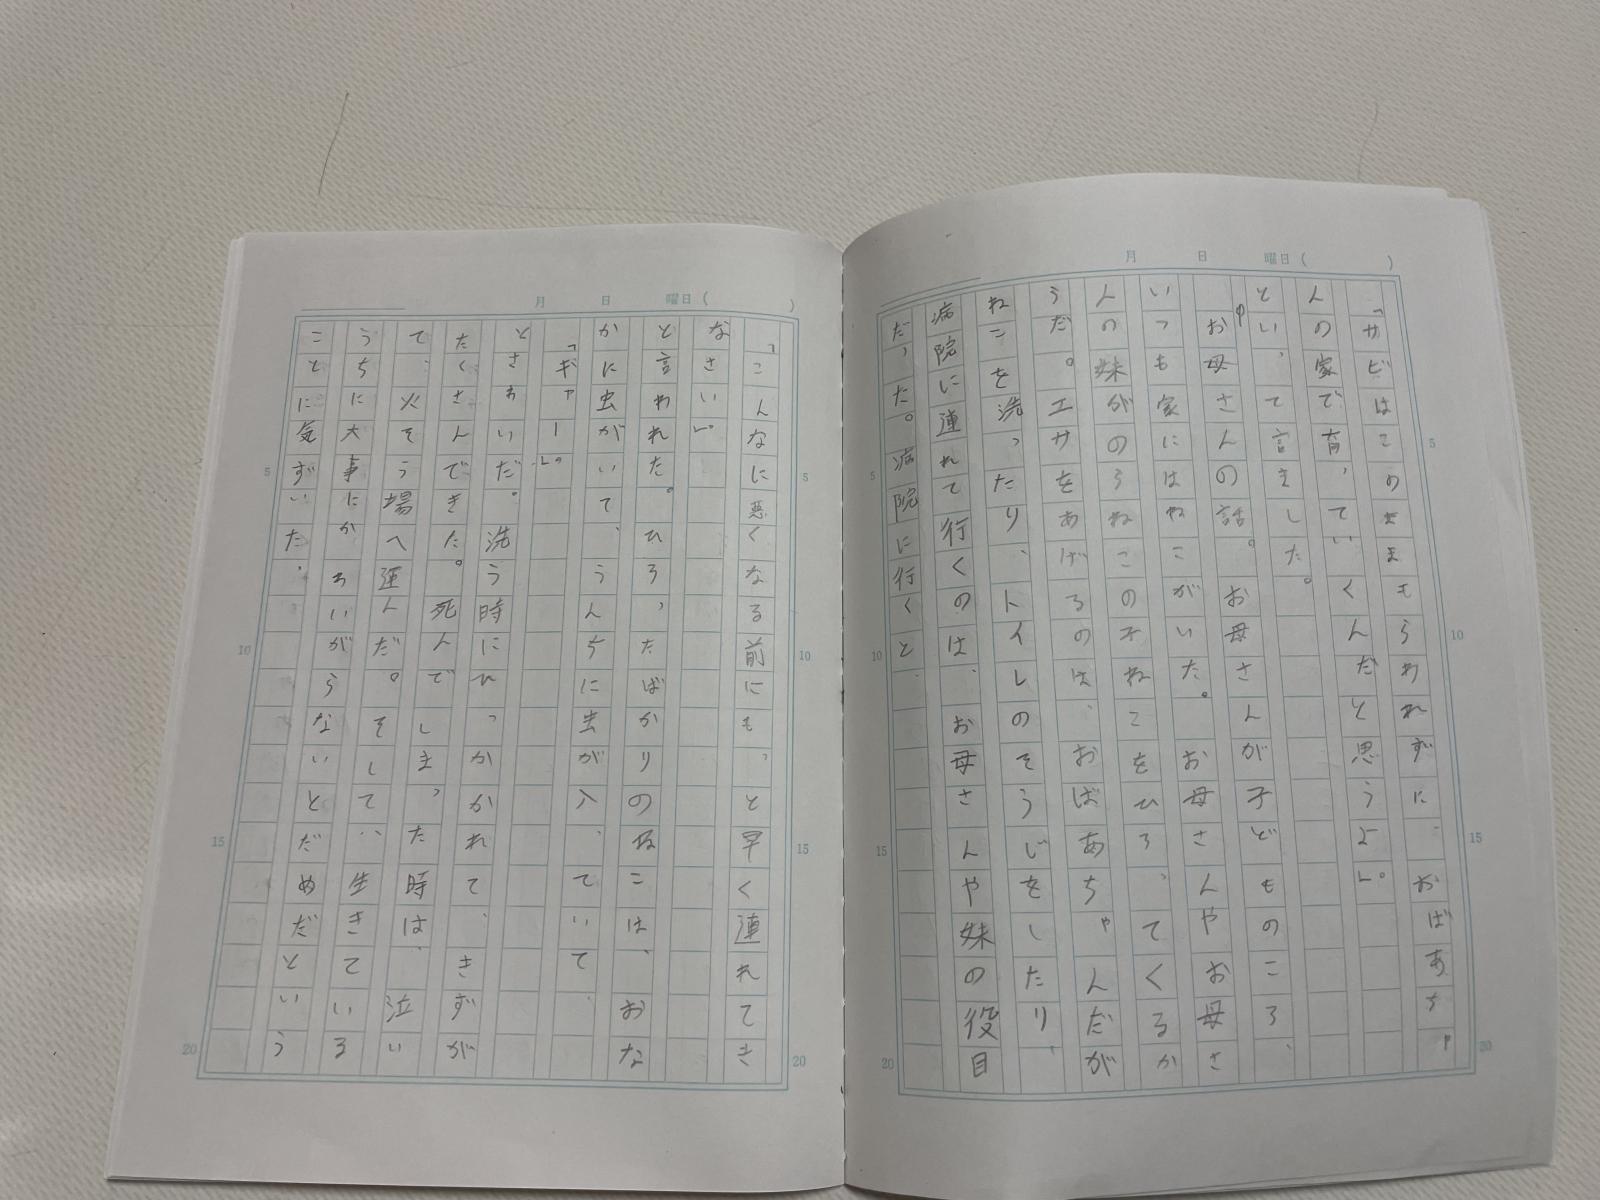 月　日　曜日（　　）
「サビはこのまままもらわれずに、おばあちゃ
んの家で育っていくんだと思うよ」。
といって言きました。
お母さんの話。お母さんが子どものころ、
いつも家にはねこがいた。お母さんやお母さ
んの妹がのらねこの子ねこをひろってくるか
らだ。エサをあげるのは、おばあちゃんだが
ねこを洗ったり、トイレのそうじをしたり、
病院に連れて行くのは、お母さんや妹の役目
だった。病院に行くと、
5
10
15
20
月　日　曜日（　　）
「こんなに悪くなる前にもっと早く連れてき
なさい」。
と言われた。ひろったばかりのねこは、おな
かに虫がいて、うんちに虫が入っていて、
「ギャー」。
とさわいだ。洗う時にひっかかれて、きずが
たくさんできた。死んでしまった時は、泣い
て、火そう場へ運んだ。そして、生きている
うちに大事にかわいがらないとだめだという
ことに気ずいた。
5
10
15
20